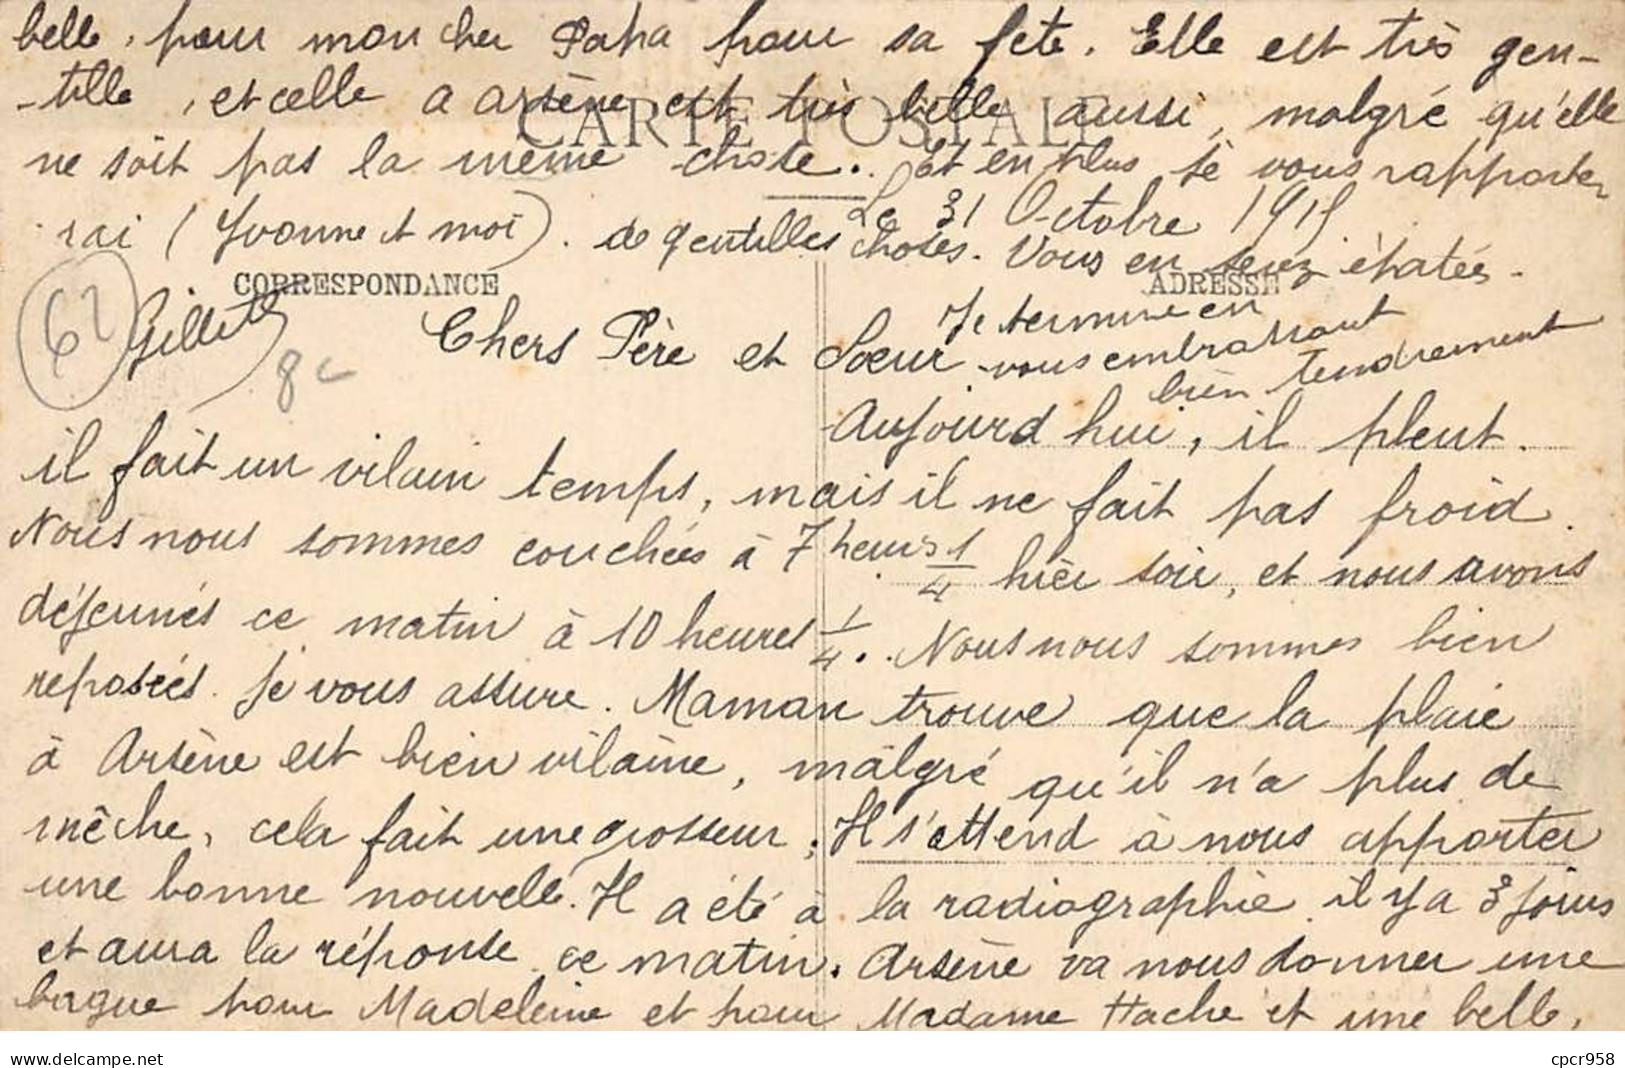 belle, pour mon cher Papa pour sa fete. Elle est très gen-
-tille, et celle a arsène est très belle aussi, malgré qu'elle
CARTE POSTALE
ne soit pas la même chose. Et en plus je vous rapporte
rai (Yvonne et moi). de gentilles choses. Vous en serez épatés.
Le 31 Octobre 1915
CORRESPONDANCE
ADRESSE
62
8c
Je termine en
vous embrassant
bien tendrement
Chers Père et Soeur
Aujourd hui, il pleut.
il fait un vilain temps, mais il ne fait pas froid.
Nous nous sommes couchées à 7 heures 1/4 hier soir, et nous avons
déjeunés ce matin à 10 heures 1/4. Nous nous sommes bien
reposées. Je vous assure. Maman trouve que la plaie
à Arsène est bien vilaine, malgré qu'il n'a plus de
mêche, cela fait une grosseur; Il s'attend à nous apporter
une bonne nouvelle. Il a été à la radiographie il y a 3 jours
et aura la réponse ce matin. Arsène va nous donner une
bague pour Madeleine et pour Madame Hache et une belle,
cpcr958
www.delcampe.net